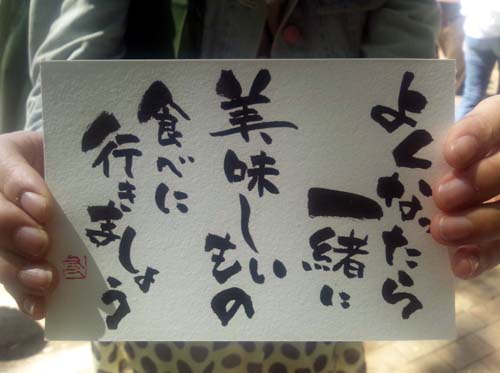 よくなったら
一緒に
美味しいもの
食べに
行きましょう